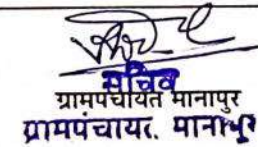 सचिव
ग्रामपंचायत मानापुर
ग्रामपंचायत. मानापुर